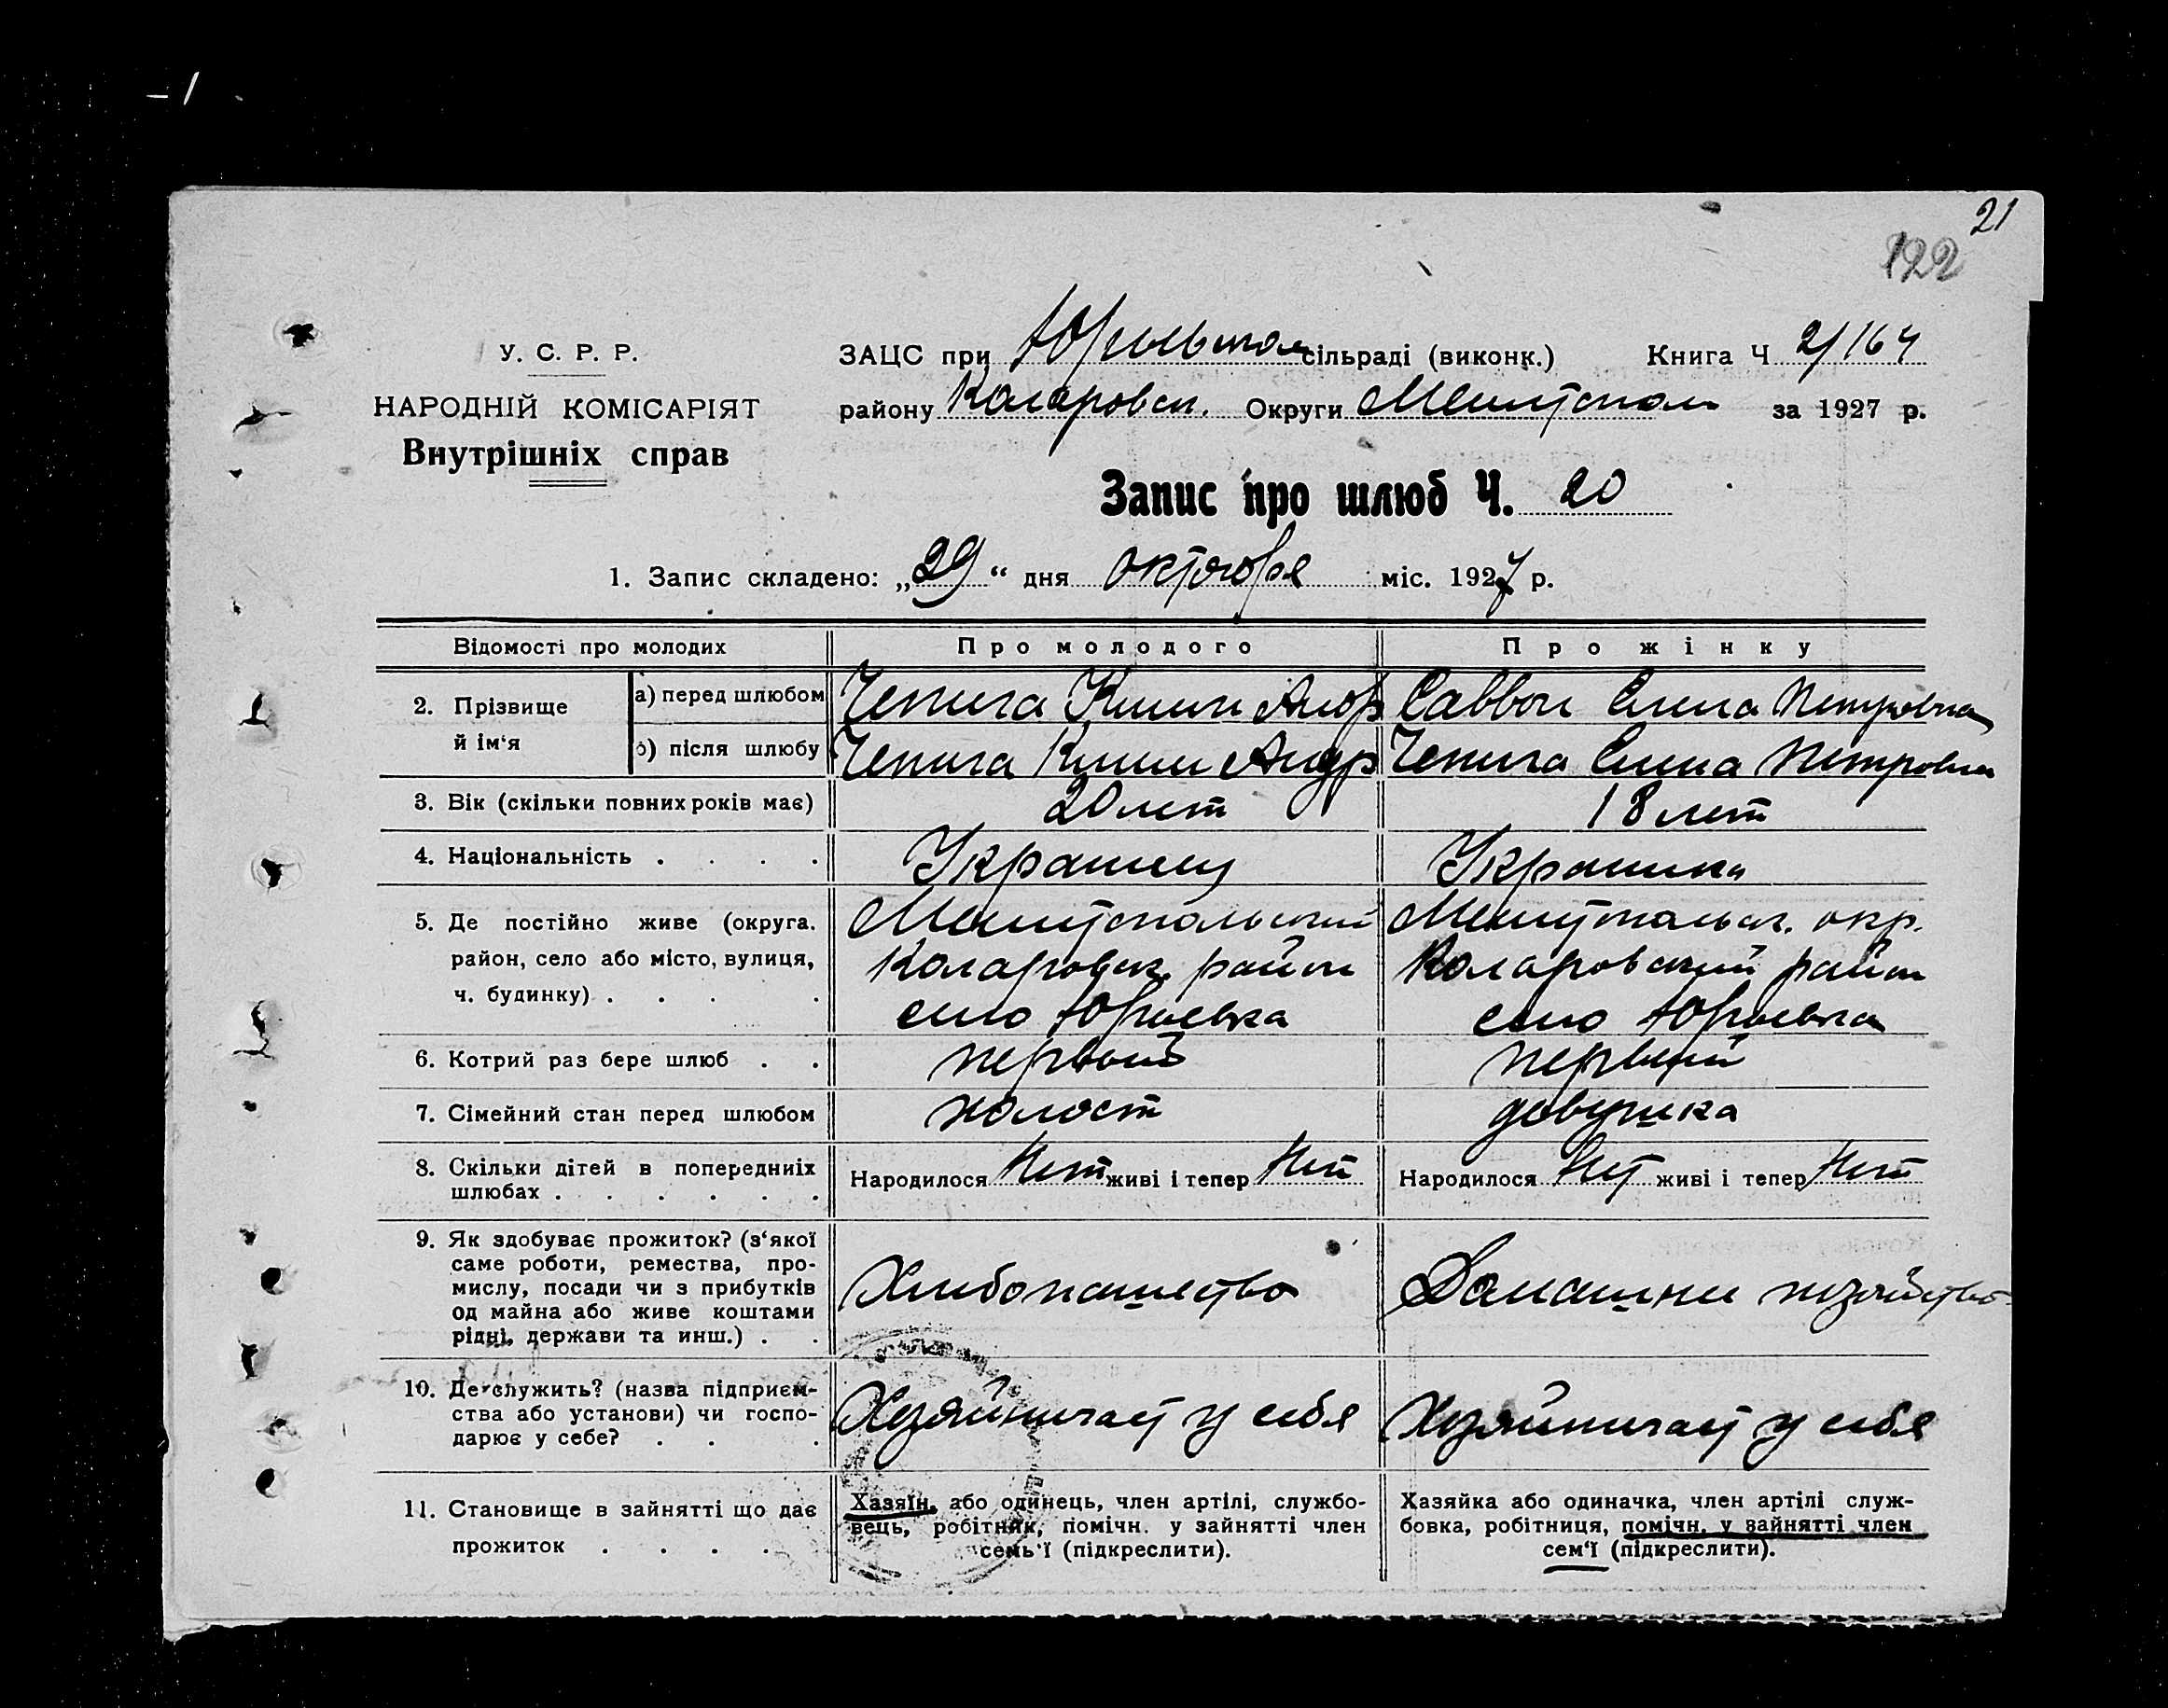 21
122
У. С. Р. Р.
НАРОДНІЙ КОМІСАРІЯТ
Внутрішніх справ
ЗАЦС при Юрьевском сільраді (виконк.) Книга Ч 2/164
району Коларовск. Округи Мелитополь за 1927 р.
Запис про шлюб Ч. 20
1. Запис складено: „29“ дня октября міс. 1927 р.
Відомості про молодих
Про молодого
Про жінку
2. Прізвище й ім‘я
а) перед шлюбом
Чепига Андр
Саввон Елена Петровна
б) після шлюбу
Чепига Андр
Чепига Елена Петровна
3. Вік (скільки повних років має)
20 лет
18 лет
4. Національність . . . .
Украинец
Украинка
5. Де постійно живе (округа.
район, село або місто, вулиця,
ч. будинку) . . . .
Мелитопольский
Коларовск. район
село Юрьевка
Мелитопольск. окр.
Коларовский район
село Юрьевка
6. Котрий раз бере шлюб . .
первый
первый
7. Сімейний стан перед шлюбом
холост
девушка
8. Скільки дітей в попередниіх
шлюбах . . . . . .
Народилося Нет живі і тепер Нет
Народилося Нет живі і тепер Нет
9. Як здобуває прожиток? (з‘якої
саме роботи, ремества, про-
мислу, посади чи з прибутків
од майна або живе коштами
рідні, держави та инш.) . .
Хлебопашество
Домашни хозяйство
10. Де служить? (назва підприєм-
ства або установи) чи госпо-
дарює у себе? . . .
Хозяйничает у себя
Хозяйничает у себя
11. Становище в зайнятті що дає
прожиток . . . .
Хазяїн, або одинець, член артілі, службо-
вець, робітник, помічн. у зайнятті член
семь‘ї (підкреслити).
Хазяйка або одиначка, член артілі служ-
бовка, робітниця, помічн. у зайнятті член
сем‘ї (підкреслити).